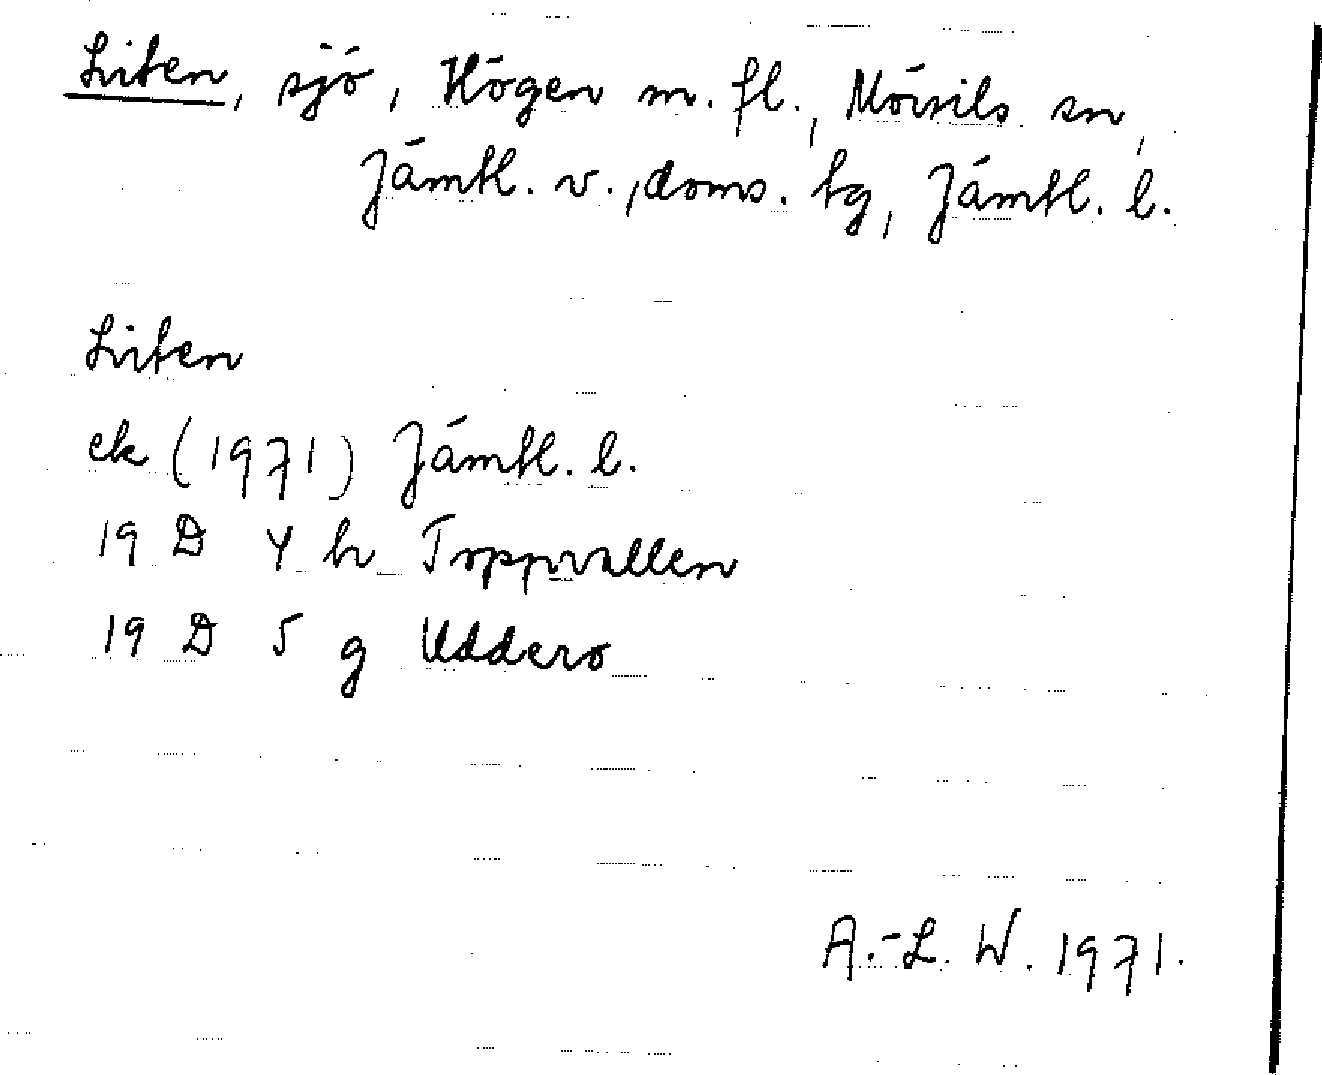 Liten, sjö, Högen m. fl., Mörsils sn,
Jämtl. v., doms. tg, Jämtl. l.
Liten
ek (1971) Jämtl. l.
19 D 4 h Toppvallen
19 D 5 g Uddero
A.-L. W. 1971.